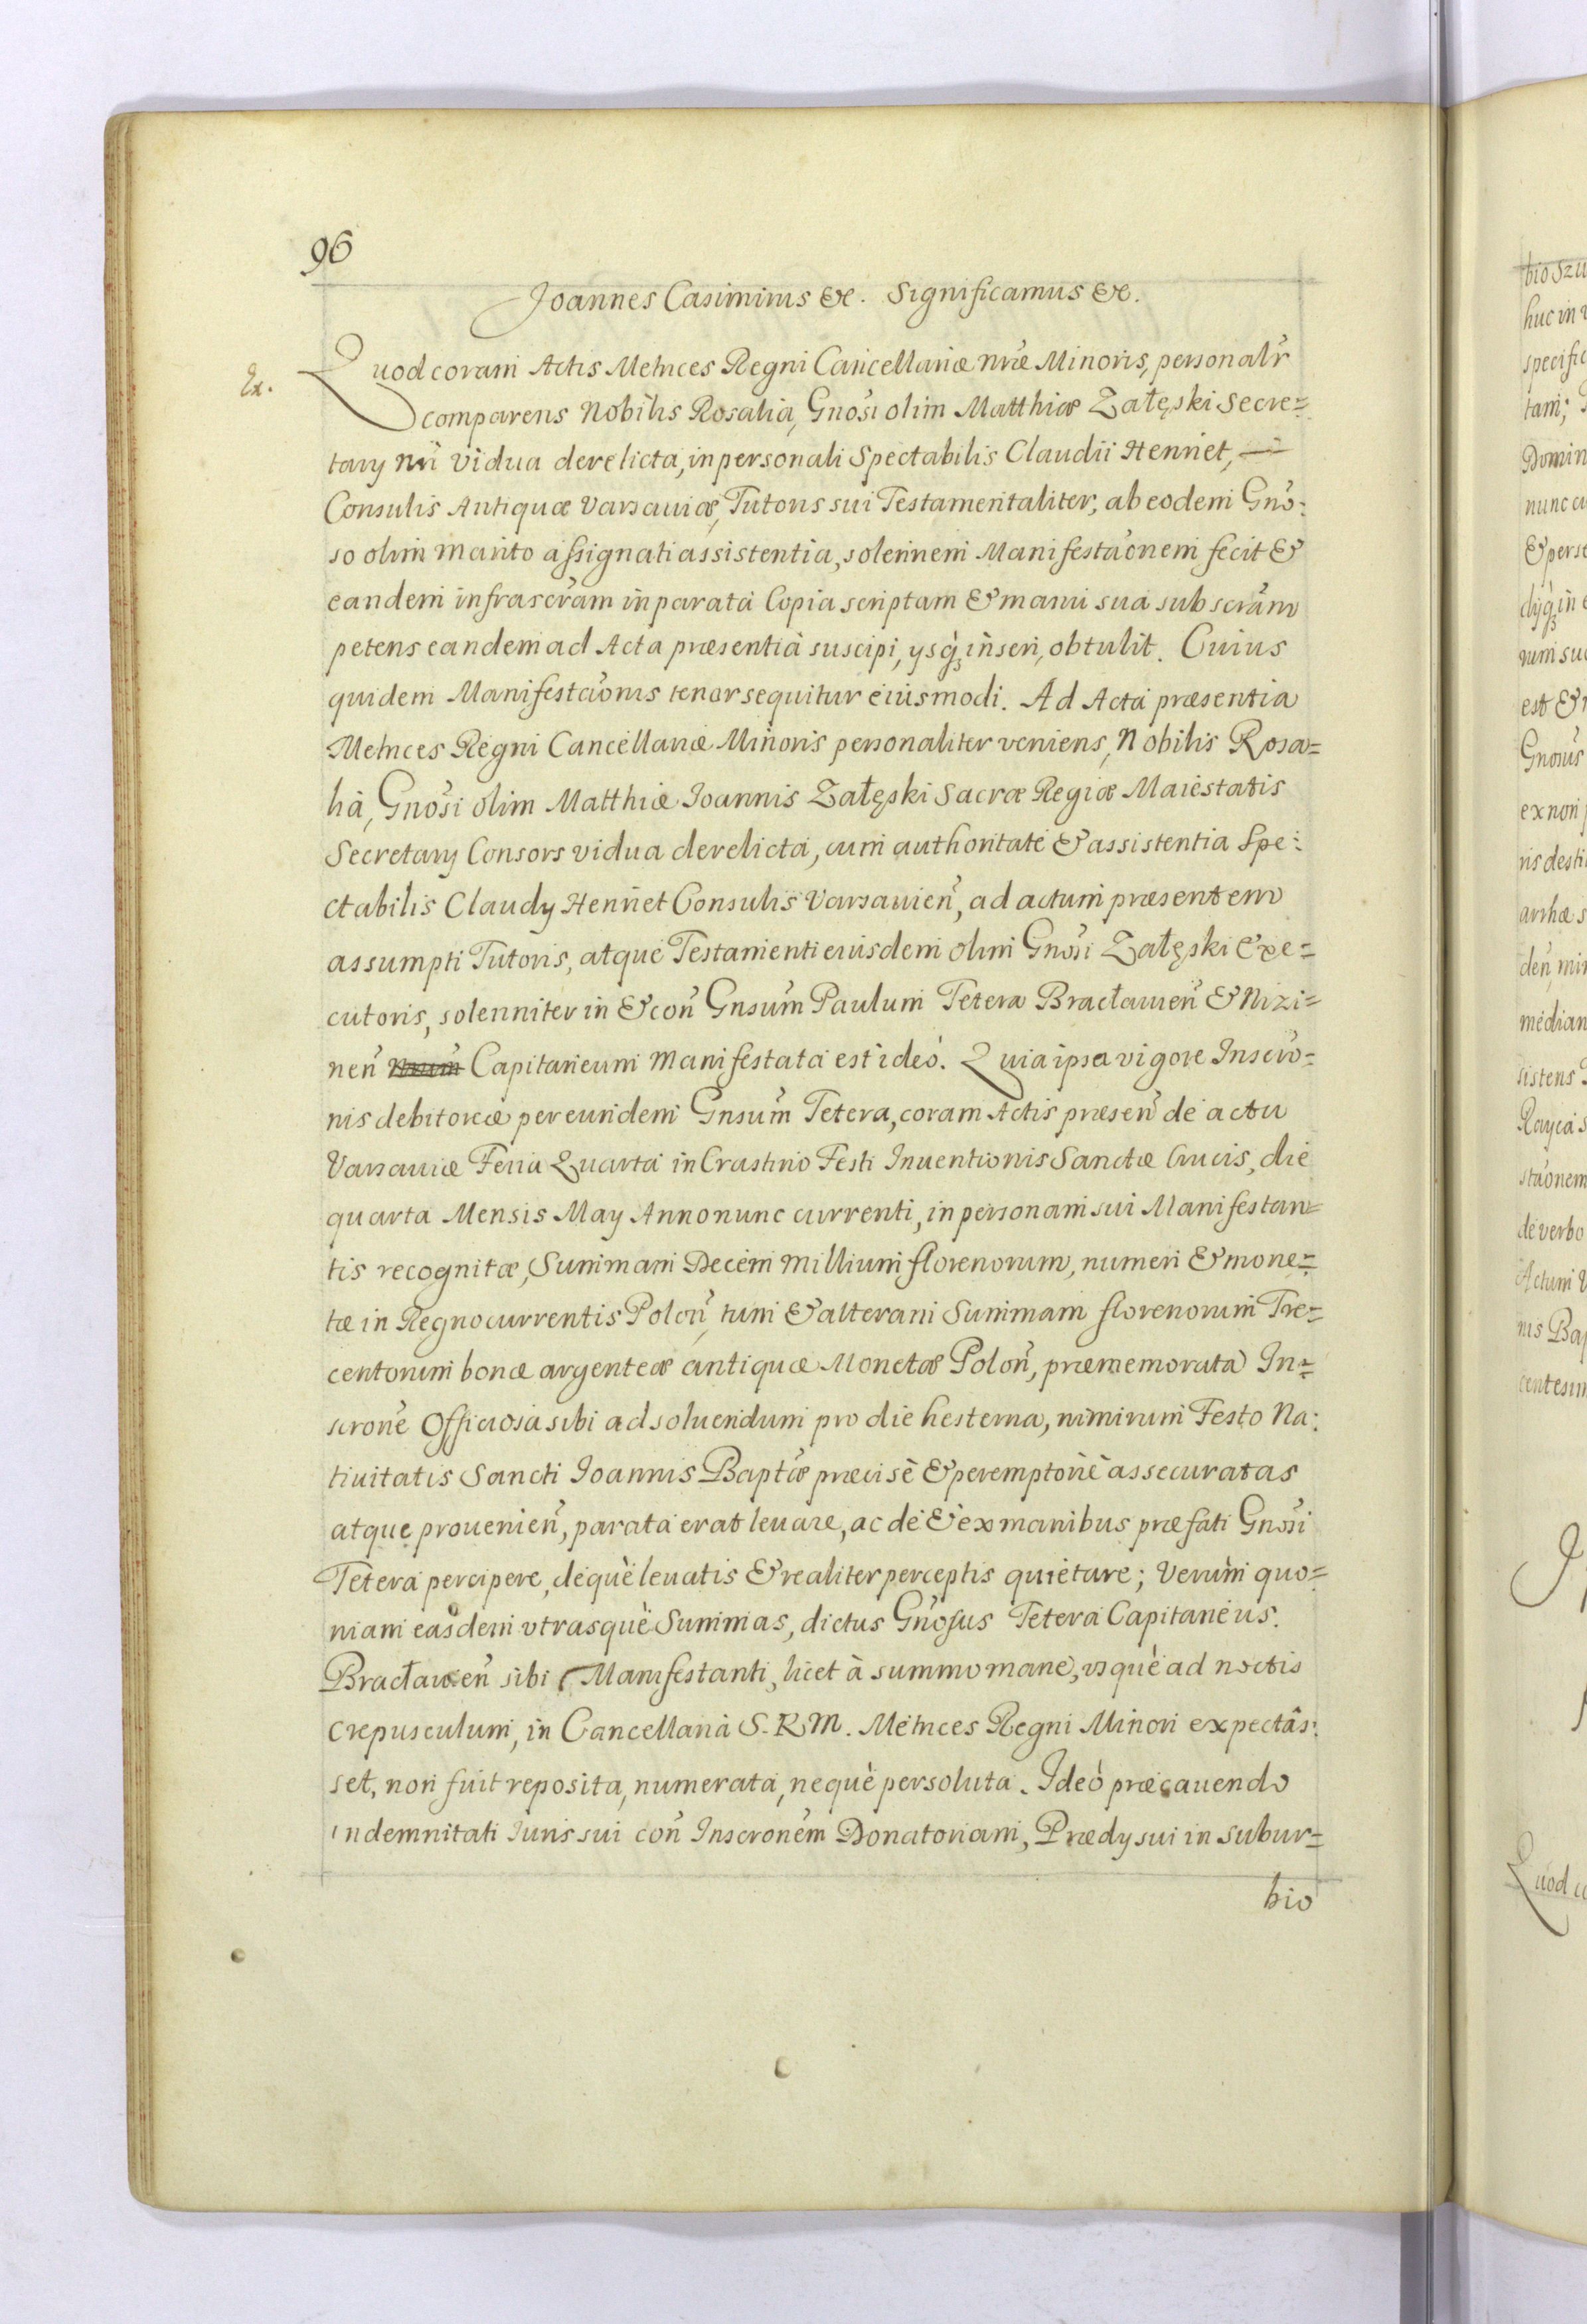 96
Joannes Casimirus &c. Significamus &c.
Ex.
Quod coram Actis Metrices Regni Cancellariæ nr̃æ Minoris, personalr̃
comparens Nobilis Rosalia, Gnosi olim Matthiæ Załęski Secre=
tary nr̃i vidua derelicta, in personali Spectabilis Claudii Henriet, —
Consulis Antiquæ Varsauiæ, Tutoris sui Testamentaliter, ab eodem Gno:
so olim marito assignati assistentia, solennem Manifestaõnem fecit &
eandem infrascr̃am in parata Copia scriptam & manu sua subscr̃am
petens eandem ad Acta præsentia suscipi, ysq̀ꝫ inseri, obtulit. Cuius
quidem Manifestaõnis tenor sequitur eiusmodi. Ad Acta præsentia
Metrices Regni Cancellariæ Minoris personaliter veniens, Nobilis Rosa=
lia, Gnosi olim Matthiæ Joannis Załęski Sacræ Regiæ Maiestatis
Secretary Consors vidua derelicta, cum authoritate & assistentia Spe:
ctabilis Claudy Henriet Consulis Varsauien̄, ad actum præsentem
assumpti Tutoris, atque Testamenti eiusdem olim Gnosi Załęski Exe=
cutoris, solenniter in & con̄ Gnsum Paulum Tetera Bracłauien̄ & Nizi=
nen̄ Capitaneum Manifestata est ideó. Quia ipsa vigore Inscrõ=
nis debitoriæ per eundem Gnsum Tetera, coram Actis præsen̄ de actu
Varsauiæ Feria Quarta in Crastino Festi Inuentionis Sanctæ Crucis, die
quarta Mensis May Anno nunc currenti, in personam sui Manifestan=
tis recognitæ, Summam Decem Millium florenorum, numeri & mone=
tæ in Regno currentis Polon̄, tum & alteram Summam florenorum Tre=
centorum bonæ argenteæ antiquæ Monetæ Polon̄, præmemorata In=
scrone Officiosa sibi ad soluendum pro die hesterna, nimirum Festo Na:
tiuitatis Sancti Joannis Baptæ præcisè & peremptoriè assecuratas
atque prouenien̄, parata erat leuare, ac de & ex manibus præfati Gnosi
Tetera percipere, dequè leuatis & realiter perceptis quietare; Verùm quo=
niam easdem vtrasquè Summas, dictus Gnosus Tetera Capitaneus.
Bracłauien̄ sibi Manifestanti, licet à summo mane, vsquè ad noctis
crepusculum, in Cancellaria S. R M. Metrices Regni Minori expectâs:
set, non fuit reposita, numerata, nequè persoluta. Ideó præcauendo
indemnitati Iuris sui con̄ Inscronem Donatoriam, Prædy sui in subur=
bio